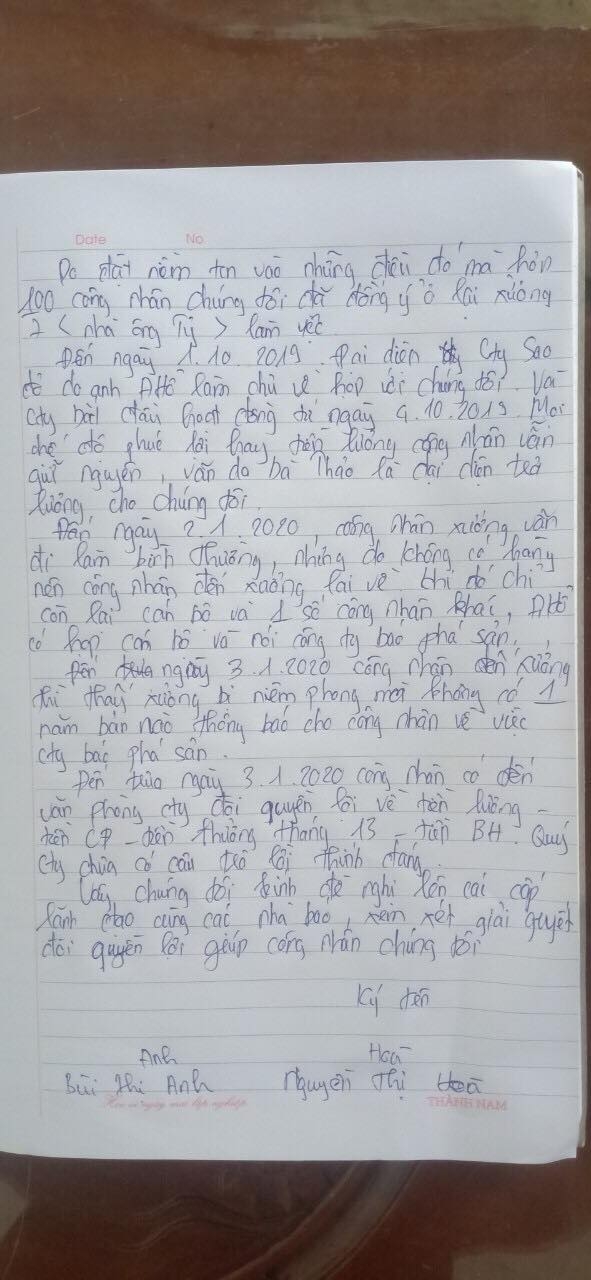 Date No.
Do đặt niềm tin vào những điều đó mà hơn
100 công nhân chúng tôi đã đồng ý ở lại xưởng
2 < nhà ông Tý > làm việc
Đến ngày 1.10.2019. Đại diện Cty Sao
đỏ do anh làm chủ về họp với chúng tôi. Và
Cty bắt đầu hoạt động từ ngày 4.10.2019. Mọi
chế độ phúc lợi hay tiền lương công nhân vẫn
giữ nguyên, vẫn do bà Thảo là đại diện trả
lương cho chúng tôi.
Đến ngày 2.1.2020, công nhân xưởng vẫn
đi làm bình thường, nhưng do không có hàng
nên công nhân đến xưởng lại về khi đó chỉ
còn lại cán bộ và 1 số công nhân khác,
có họp cán bộ và nói công ty báo phá sản.
Đến ngày 3.1.2020 công nhân đến xưởng
thì thấy xưởng bị niêm phong mà không có 1
năm bản nào thông báo cho công nhân về việc
cty báo phá sản.
Đến trưa ngày 3.1.2020 công nhân có đến
văn phòng cty đòi quyền lợi về tiền lương -
tiền CP - tiền thưởng tháng 13 - tiền BH. Quý
cty chưa có câu trả lời thính đáng.
Vậy chúng tôi kính đề nghị lên các cấp
lãnh đạo cùng các nhà báo, xem xét giải quyết
đòi quyền lợi giúp công nhân chúng tôi
Ký tên
Anh Hoà
Bùi Thị Anh Nguyễn Thị Hoà
THÀNH NAM